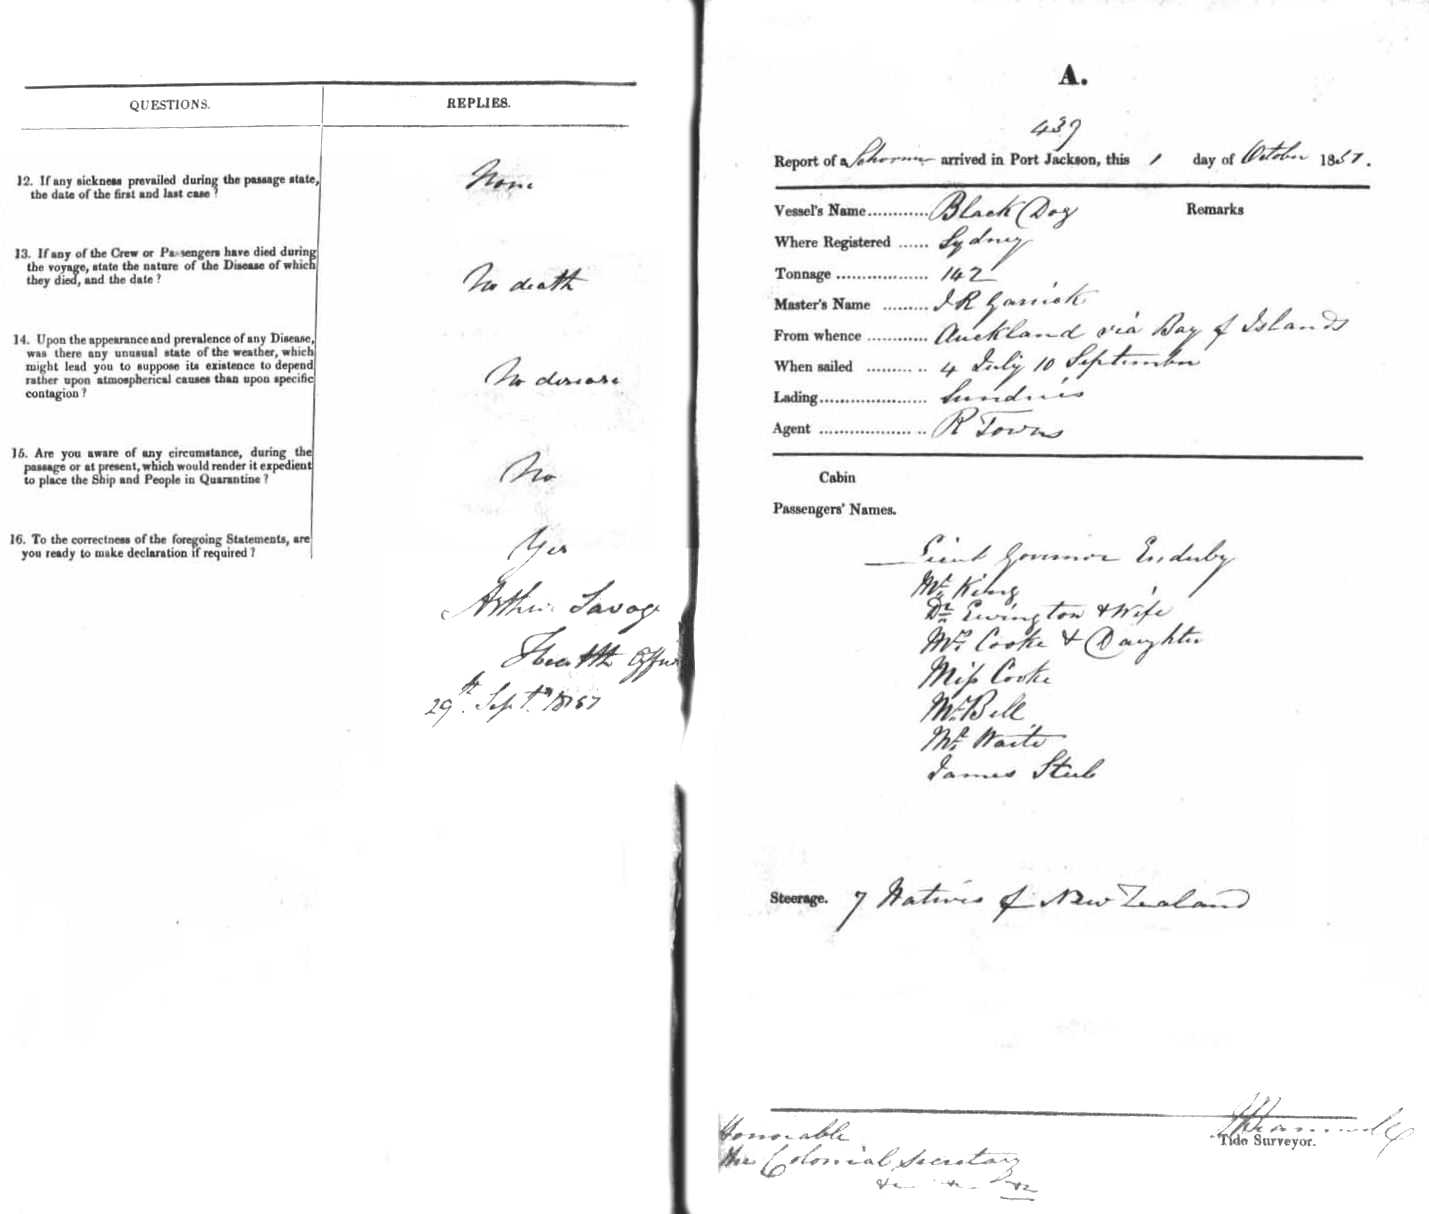 QUESTIONS.
REPLIES.
12. If any sickness prevailed during the passage state,
the date of the first and last case ?
None
13. If any of the Crew or Passengers have died during
the voyage, state the nature of the Disease of which
they died, and the date ?
No death
14. Upon the appearance and prevalence of any Disease,
was there any unusual state of the weather, which
might lead you to suppose its existence to depend
rather upon atmospherical causes than upon specific
contagion ?
No disease
15. Are you aware of any circumstance, during the
passage or at present, which would render it expedient
to place the Ship and People in Quarantine ?
No
16. To the correctness of the foregoing Statements, are
you ready to make declaration if required ?
Yes
Arthur Savage
Health Office
29th Sept. 1857
A.
437
Report of a Schooner arrived in Port Jackson, this 1 day of October 1857.
Vessel's Name............ Black Dog
Remarks
Where Registered ...... Sydney
Tonnage .................. 142
Master's Name ......... J R Garrick
From whence ............ Auckland via Bay of Islands
When sailed ......... .. 4 July 10 September
Lading..................... Sundries
Agent .................. .. R Towns
Cabin
Passengers' Names.
Lieut Governor Enderby
Mr King
Dr Ewington & Wife
Mrs Cooke & Daughter
Miss Cooke
Mr Bell
Mr Waite
James Steel
Steerage. 7 Natives of New Zealand
Tide Surveyor.
Honorable
the Colonial Secretary
&c &c &c